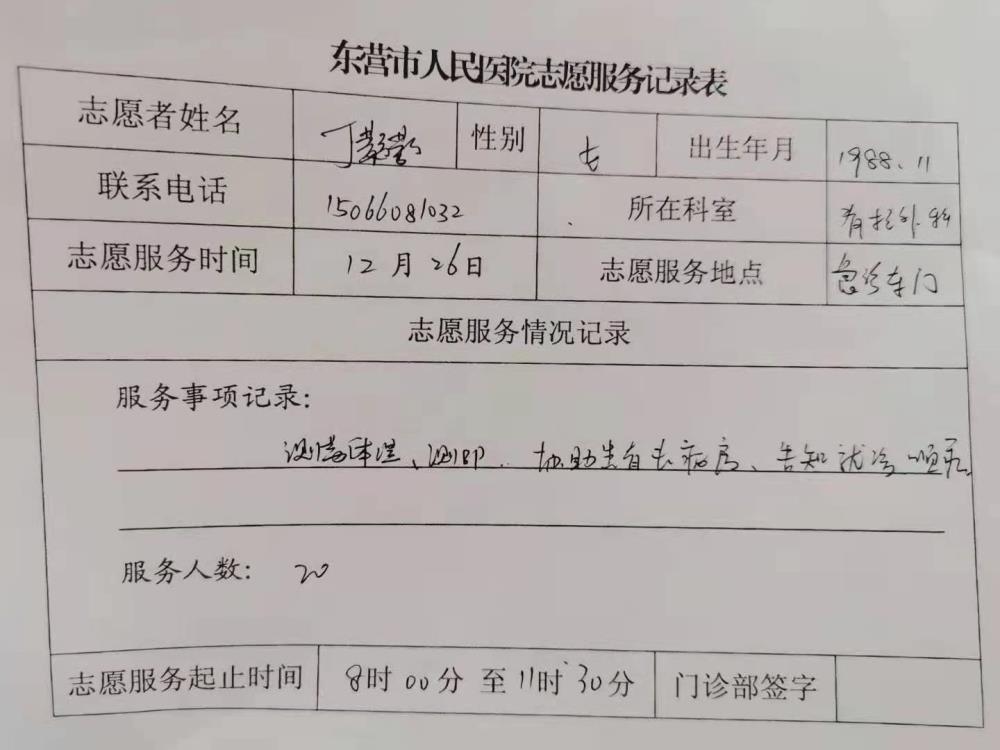 东营市人民医院志愿服务记录表
志愿者姓名 丁 性别 女 出生年月 1988.11
联系电话 15066081032 所在科室 脊柱外科
志愿服务时间 12月26日 志愿服务地点 急诊东门
志愿服务情况记录
服务事项记录:
测体温、测BP、协助患者去病房、告知就诊顺序。
服务人数: 20
志愿服务起止时间 8时00分至11时30分 门诊部签字